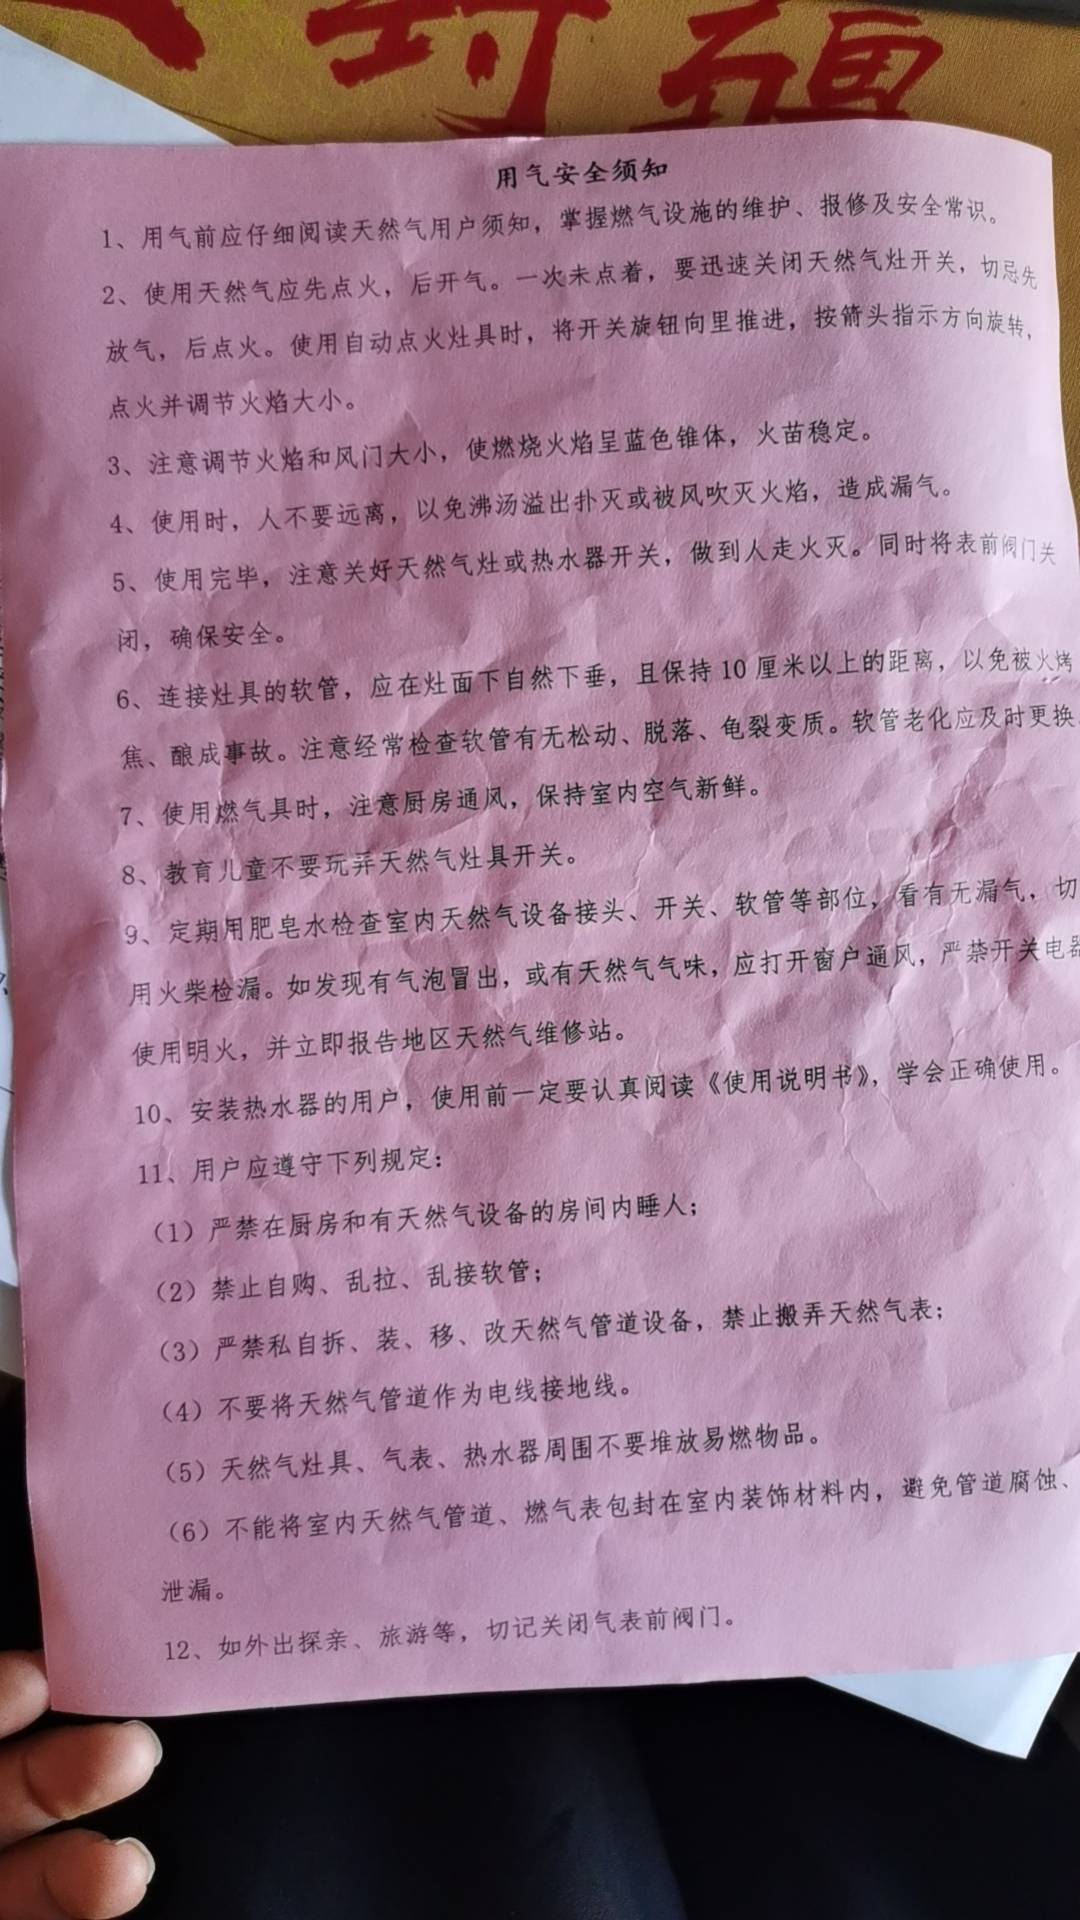 用气安全须知
1、用气前应仔细阅读天然气用户须知，掌握燃气设施的维护、报修及安全常识。
2、使用天然气应先点火，后开气。一次未点着，要迅速关闭天然气灶开关，切忌先
放气，后点火。使用自动点火灶具时，将开关旋钮向里推进，按箭头指示方向旋转，
点火并调节火焰大小。
3、注意调节火焰和风门大小，使燃烧火焰呈蓝色锥体，火苗稳定。
4、使用时，人不要远离，以免沸汤溢出扑灭或被风吹灭火焰，造成漏气。
5、使用完毕，注意关好天然气灶或热水器开关，做到人走火灭。同时将表前阀门关
闭，确保安全。
6、连接灶具的软管，应在灶面下自然下垂，且保持10厘米以上的距离，以免被火烤
焦、酿成事故。注意经常检查软管有无松动、脱落、龟裂变质。软管老化应及时更换
7、使用燃气具时，注意厨房通风，保持室内空气新鲜。
8、教育儿童不要玩弄天然气灶具开关。
9、定期用肥皂水检查室内天然气设备接头、开关、软管等部位，看有无漏气，切
用火柴检漏。如发现有气泡冒出，或有天然气气味，应打开窗户通风，严禁开关电器
使用明火，并立即报告地区天然气维修站。
10、安装热水器的用户，使用前一定要认真阅读《使用说明书》，学会正确使用。
11、用户应遵守下列规定：
（1）严禁在厨房和有天然气设备的房间内睡人；
（2）禁止自购、乱拉、乱接软管；
（3）严禁私自拆、装、移、改天然气管道设备，禁止搬弄天然气表；
（4）不要将天然气管道作为电线接地线。
（5）天然气灶具、气表、热水器周围不要堆放易燃物品。
（6）不能将室内天然气管道、燃气表包封在室内装饰材料内，避免管道腐蚀、
泄漏。
12、如外出探亲、旅游等，切记关闭气表前阀门。